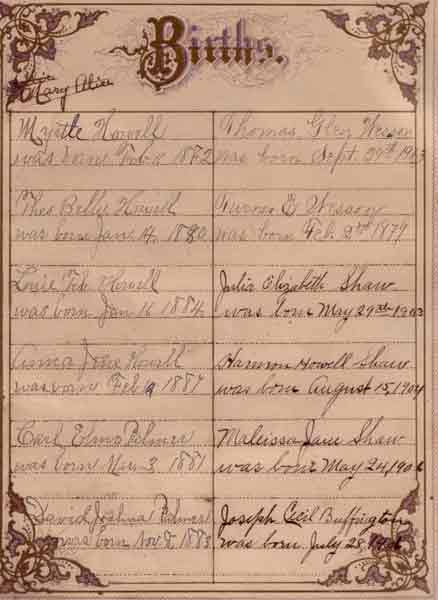 Births.
Mary Alice
Myrtle Howell
was born Feb 1882
Theo Belle Howell
was born Jan 14, 1880
Howell
was born Jan 16 1884
Howell
was born Feb 9 1887
Carl Elmo Palmer
was born Nov 3 1881
David Joshua Palmer
was born Nov 8, 1883
Thomas Glen Wesson
was born Sept. 1903
Turner E Wesson
was born Feb. 2nd 1879
Julia Elizabeth Shaw
was born May 29th 1903
Harmon Howell Shaw
was born August 15, 1904
Maleissa Jane Shaw
was born May 24, 1906
Joseph Cecil Buffington
was born July 28,